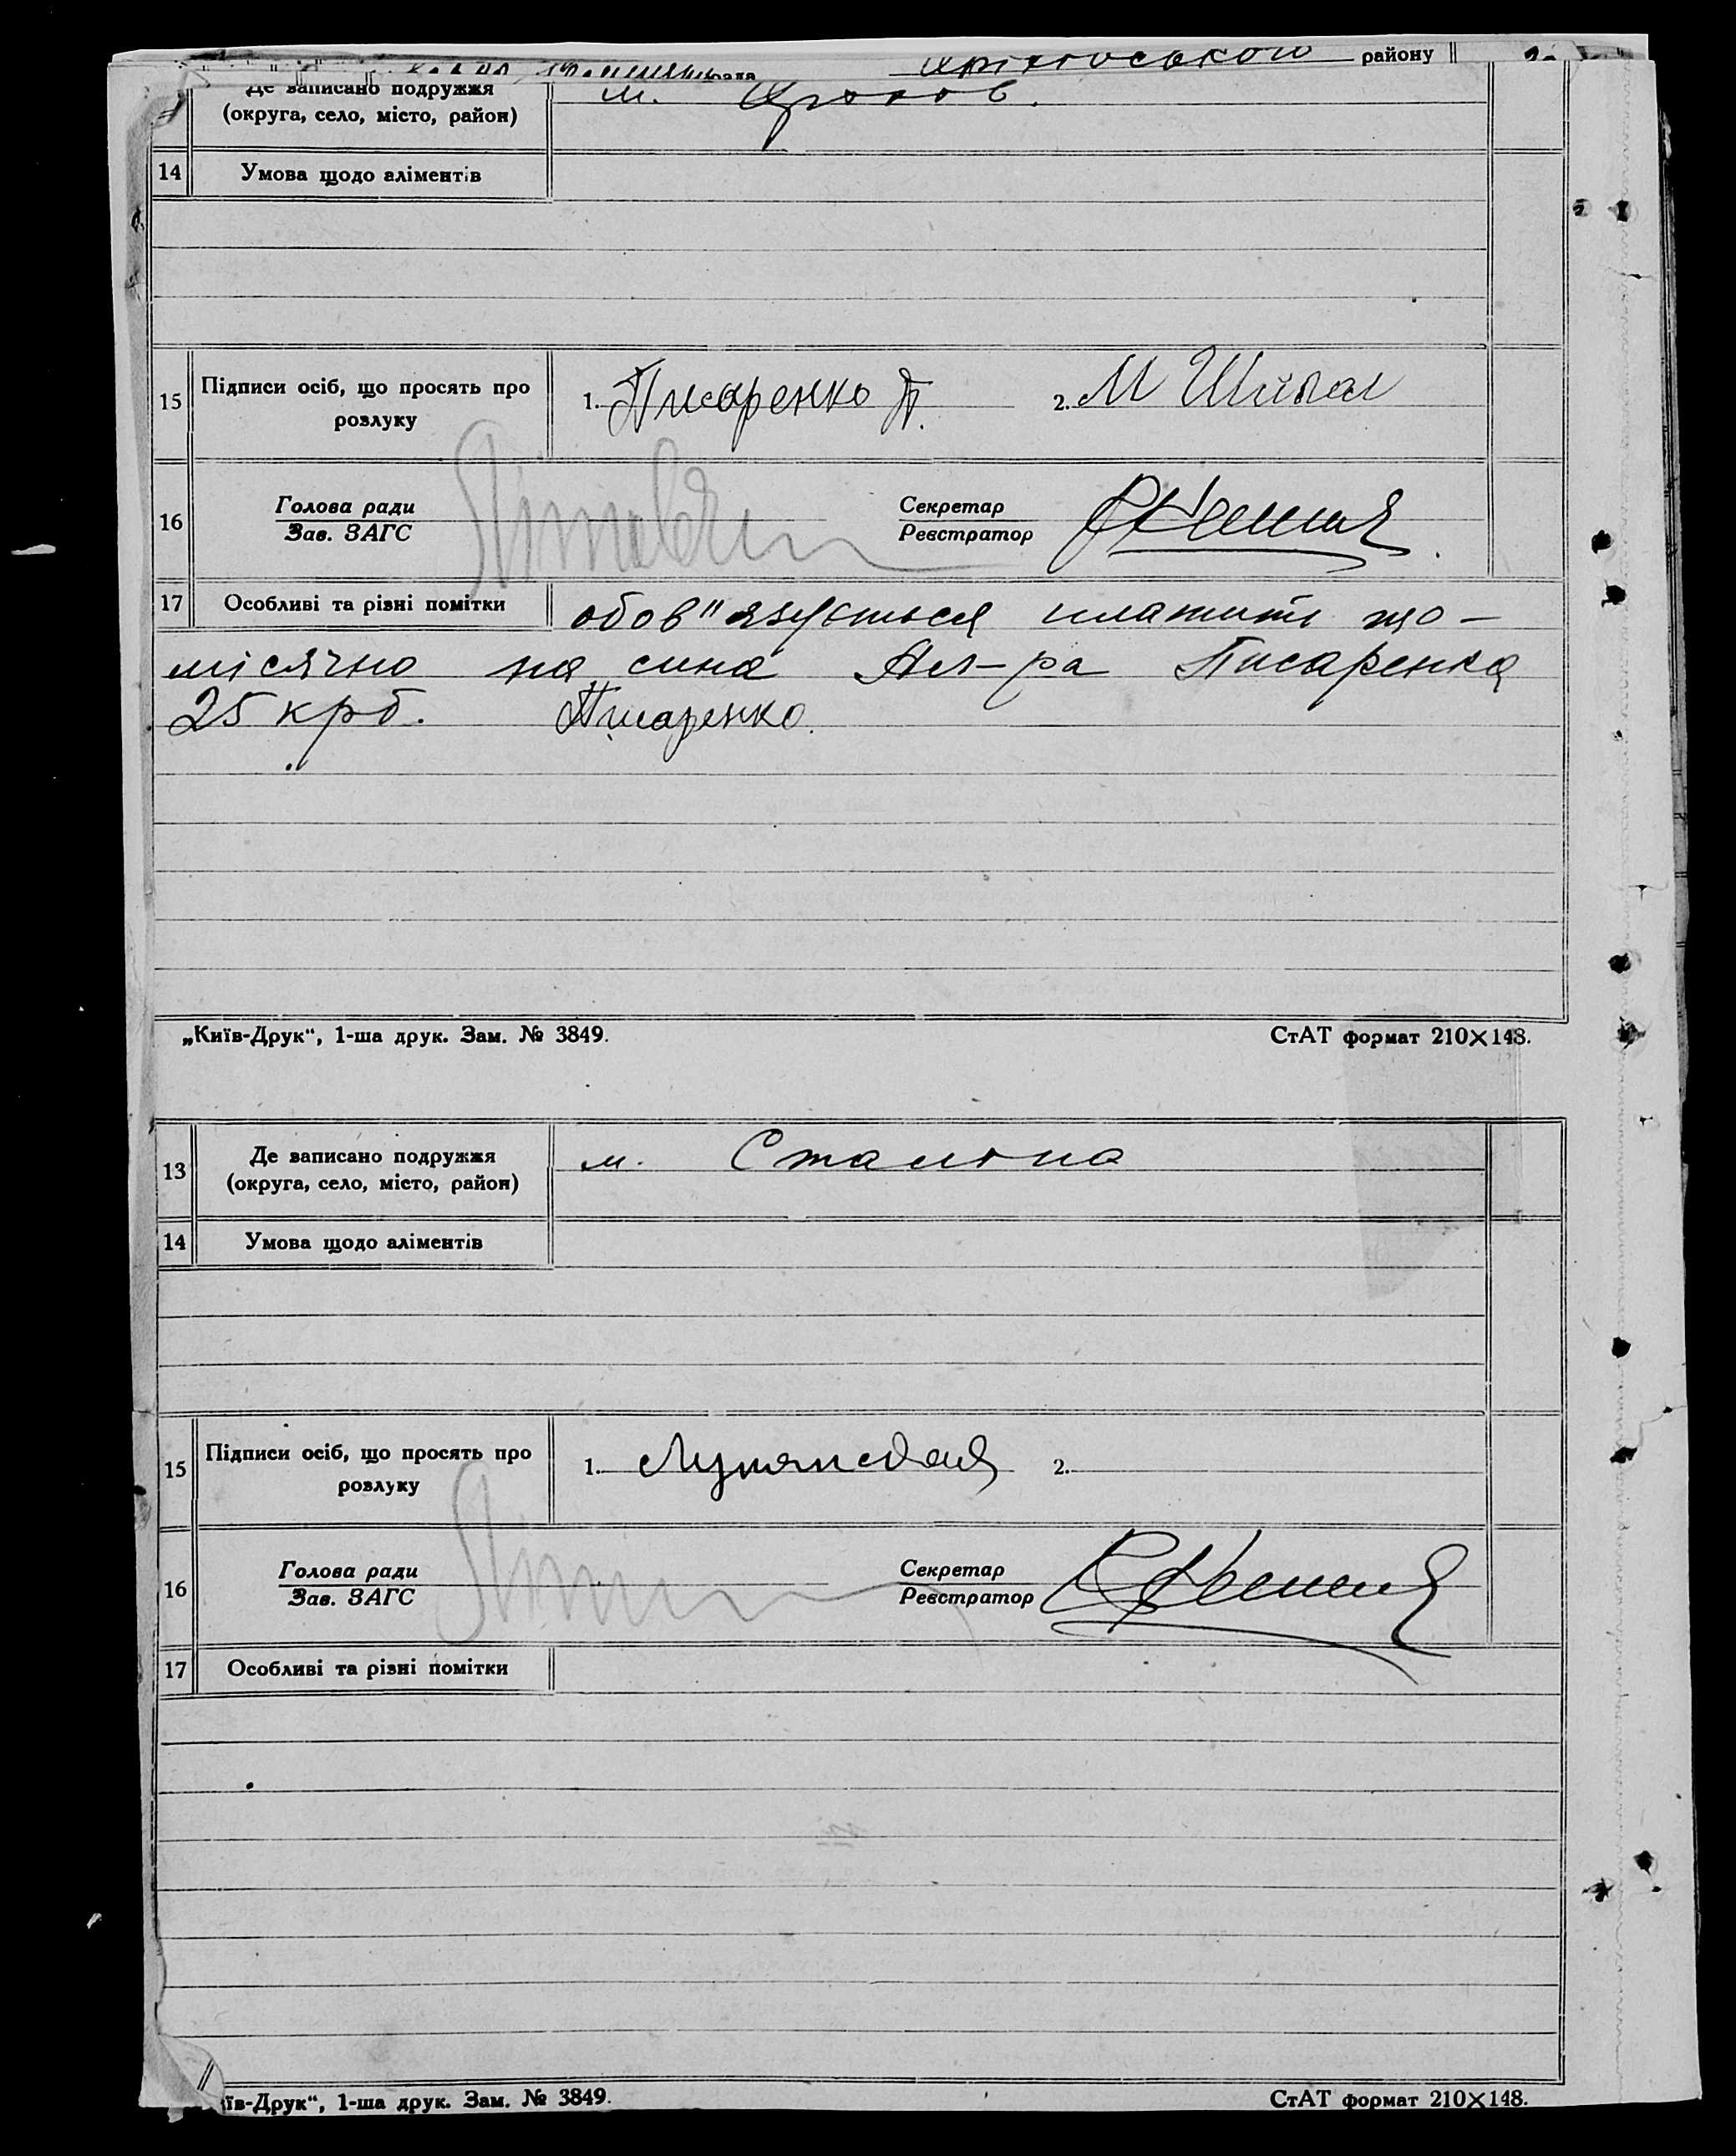 району
Де записано подружжя
м.
(округа, село, місто, район)
14 Умова щодо аліментів
15 Підписи осіб, що просять про розлуку 1. Писаренко П. 2. М
16 Голова ради Секретар
Зав. ЗАГС Реєстратор
17 Особливі та різні помітки обов"язується платити що-
місячно на сина Ал-ра Писаренка
25 крб. Писаренко.
„Київ-Друк“, 1-ша друк. Зам. № 3849. СтАТ формат 210×148.
13 Де записано подружжя (округа, село, місто, район) м.
14 Умова щодо аліментів
15 Підписи осіб, що просять про розлуку 1. 2.
16 Голова ради Секретар
Зав. ЗАГС Реєстратор
17 Особливі та різні помітки
їв-Друк“, 1-ша друк. Зам. № 3849. СтАТ формат 210×148.